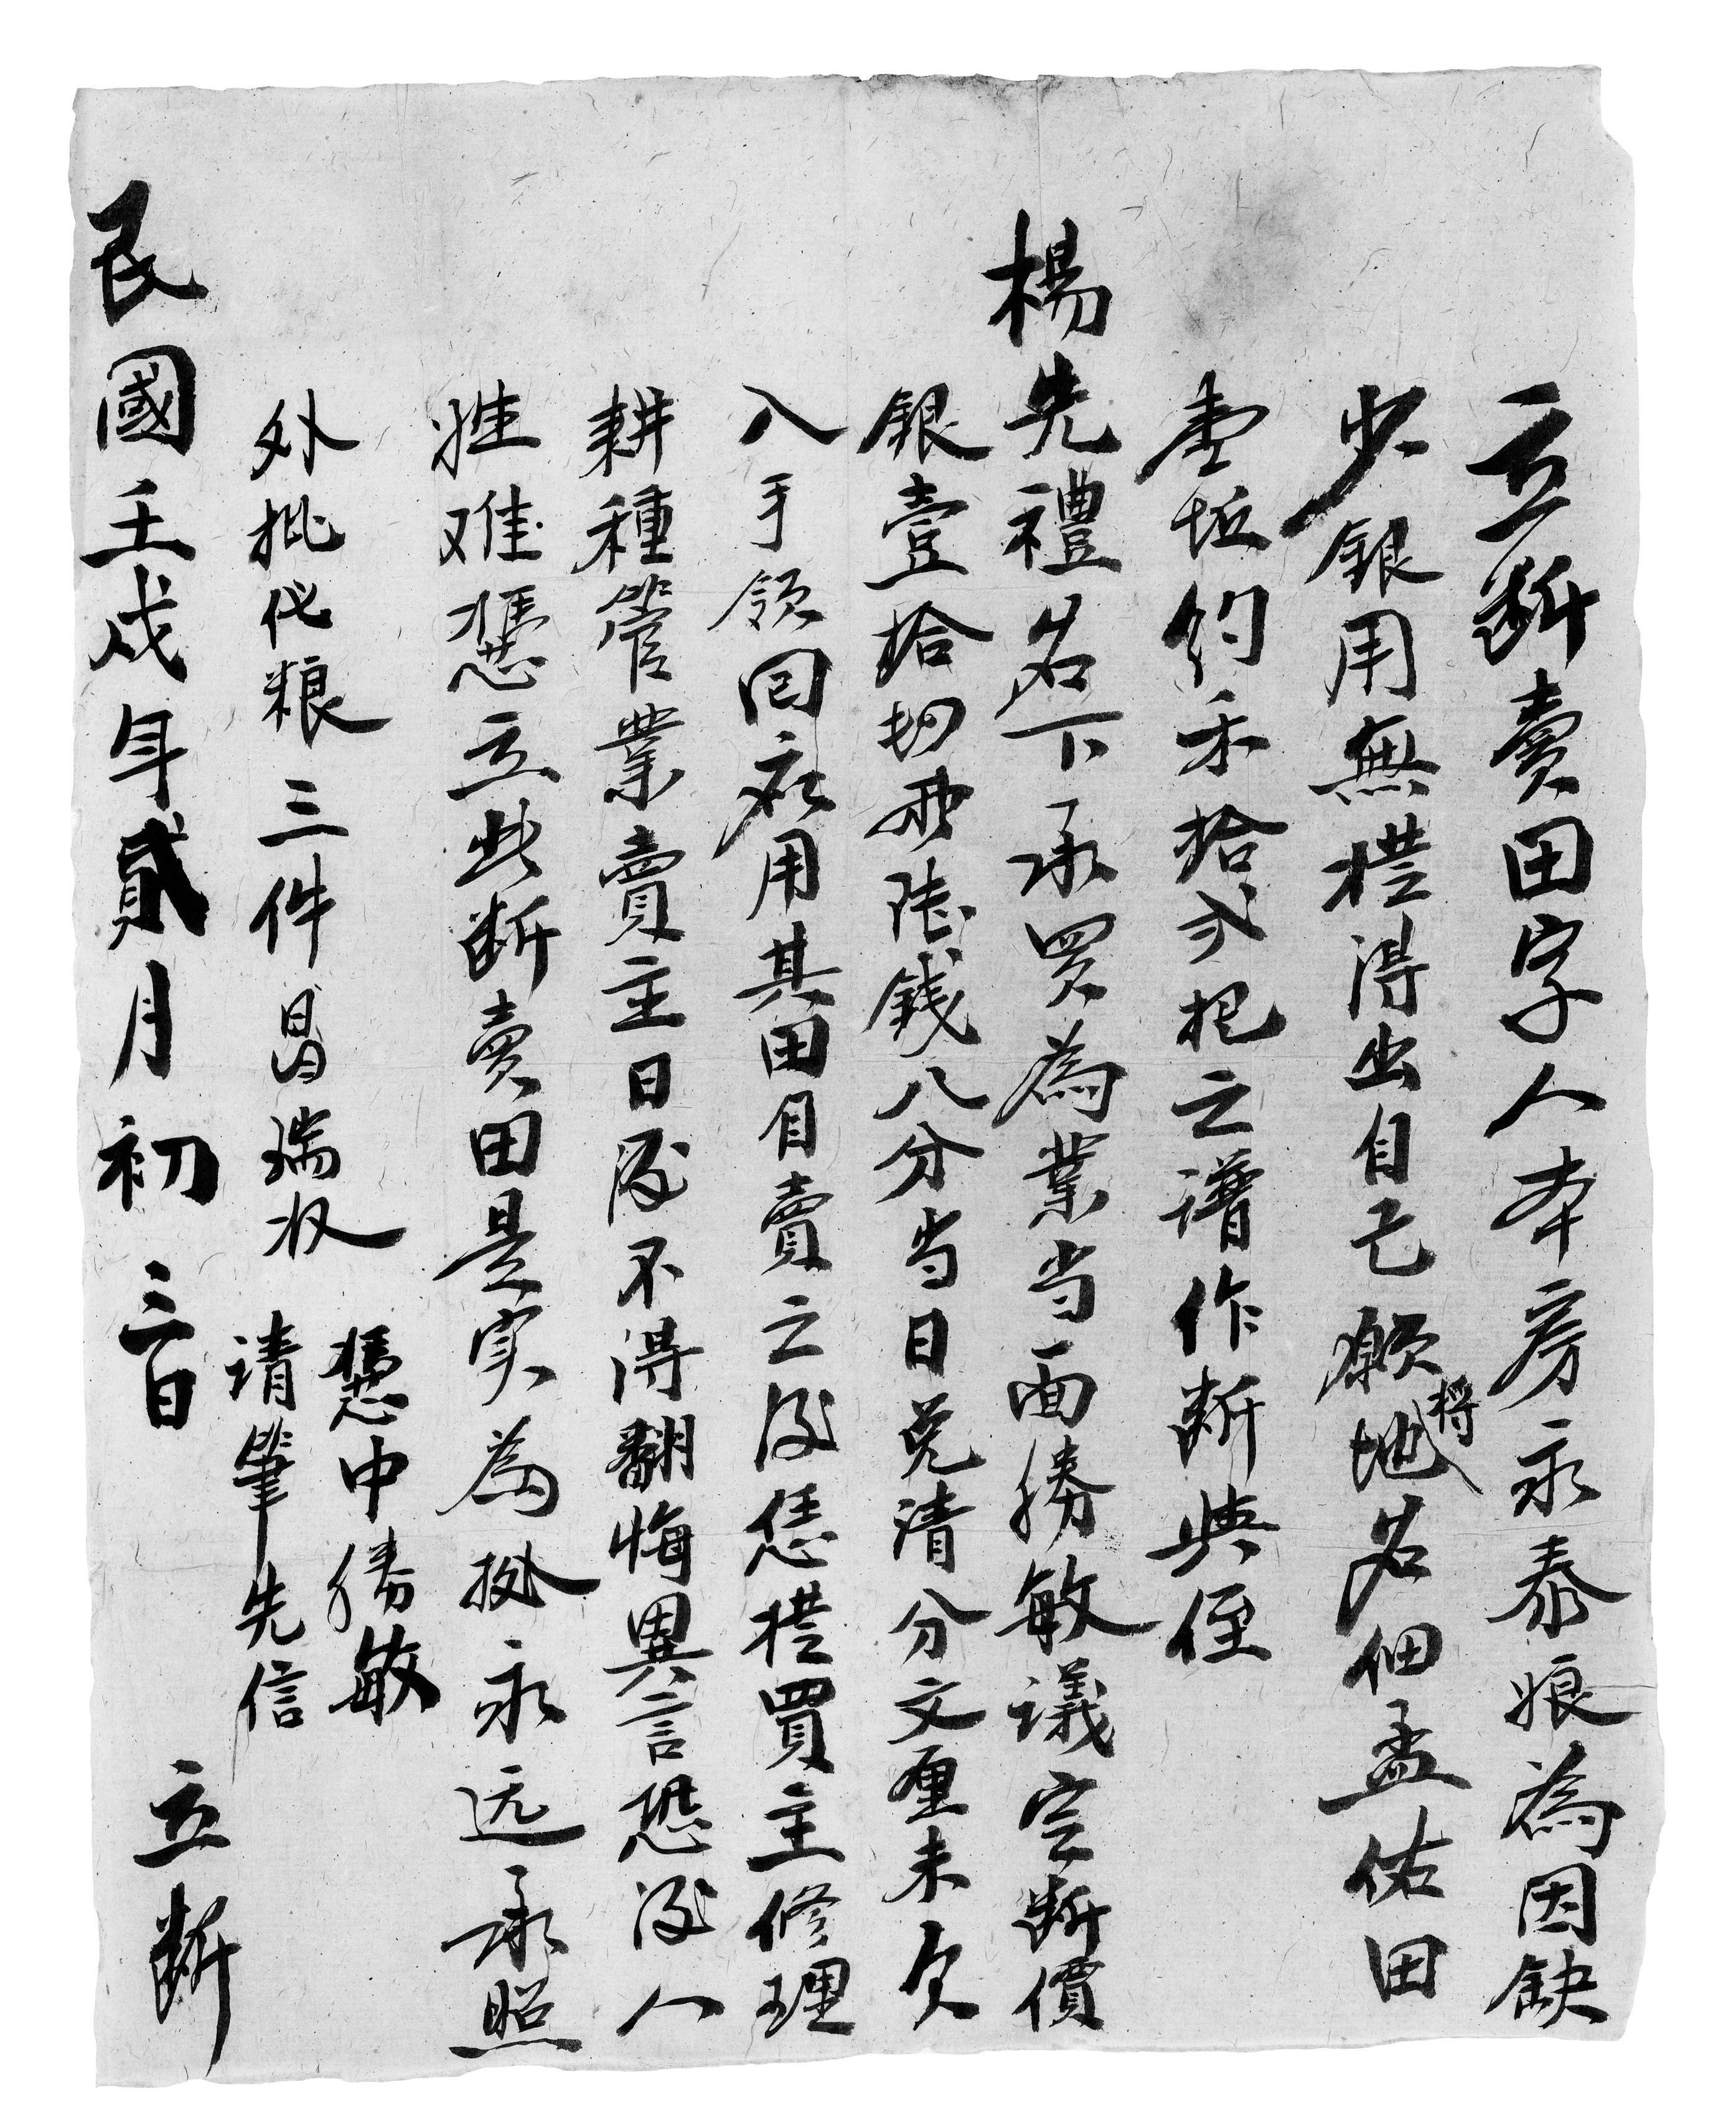 立断賣田字人本房永泰娘為因缺
少銀用無㭲得出自己願將地名佃孟佑田
壹坵約禾拾弍把之譜作断與侄
楊先禮名下承買為業当面勝敏議定断價
銀壹拾四両陸錢八分当日兑清分文厘未欠
入手領囘應用其田自賣之後恁㭲買主修理
耕種管業賣主日後不得翻悔異言恐後人
姓难憑立此断賣田是实為㨿永远承照
外批代粮三件昌瑞收
憑中勝敏
请筆先信
民國壬戌年貳月初三日
立断